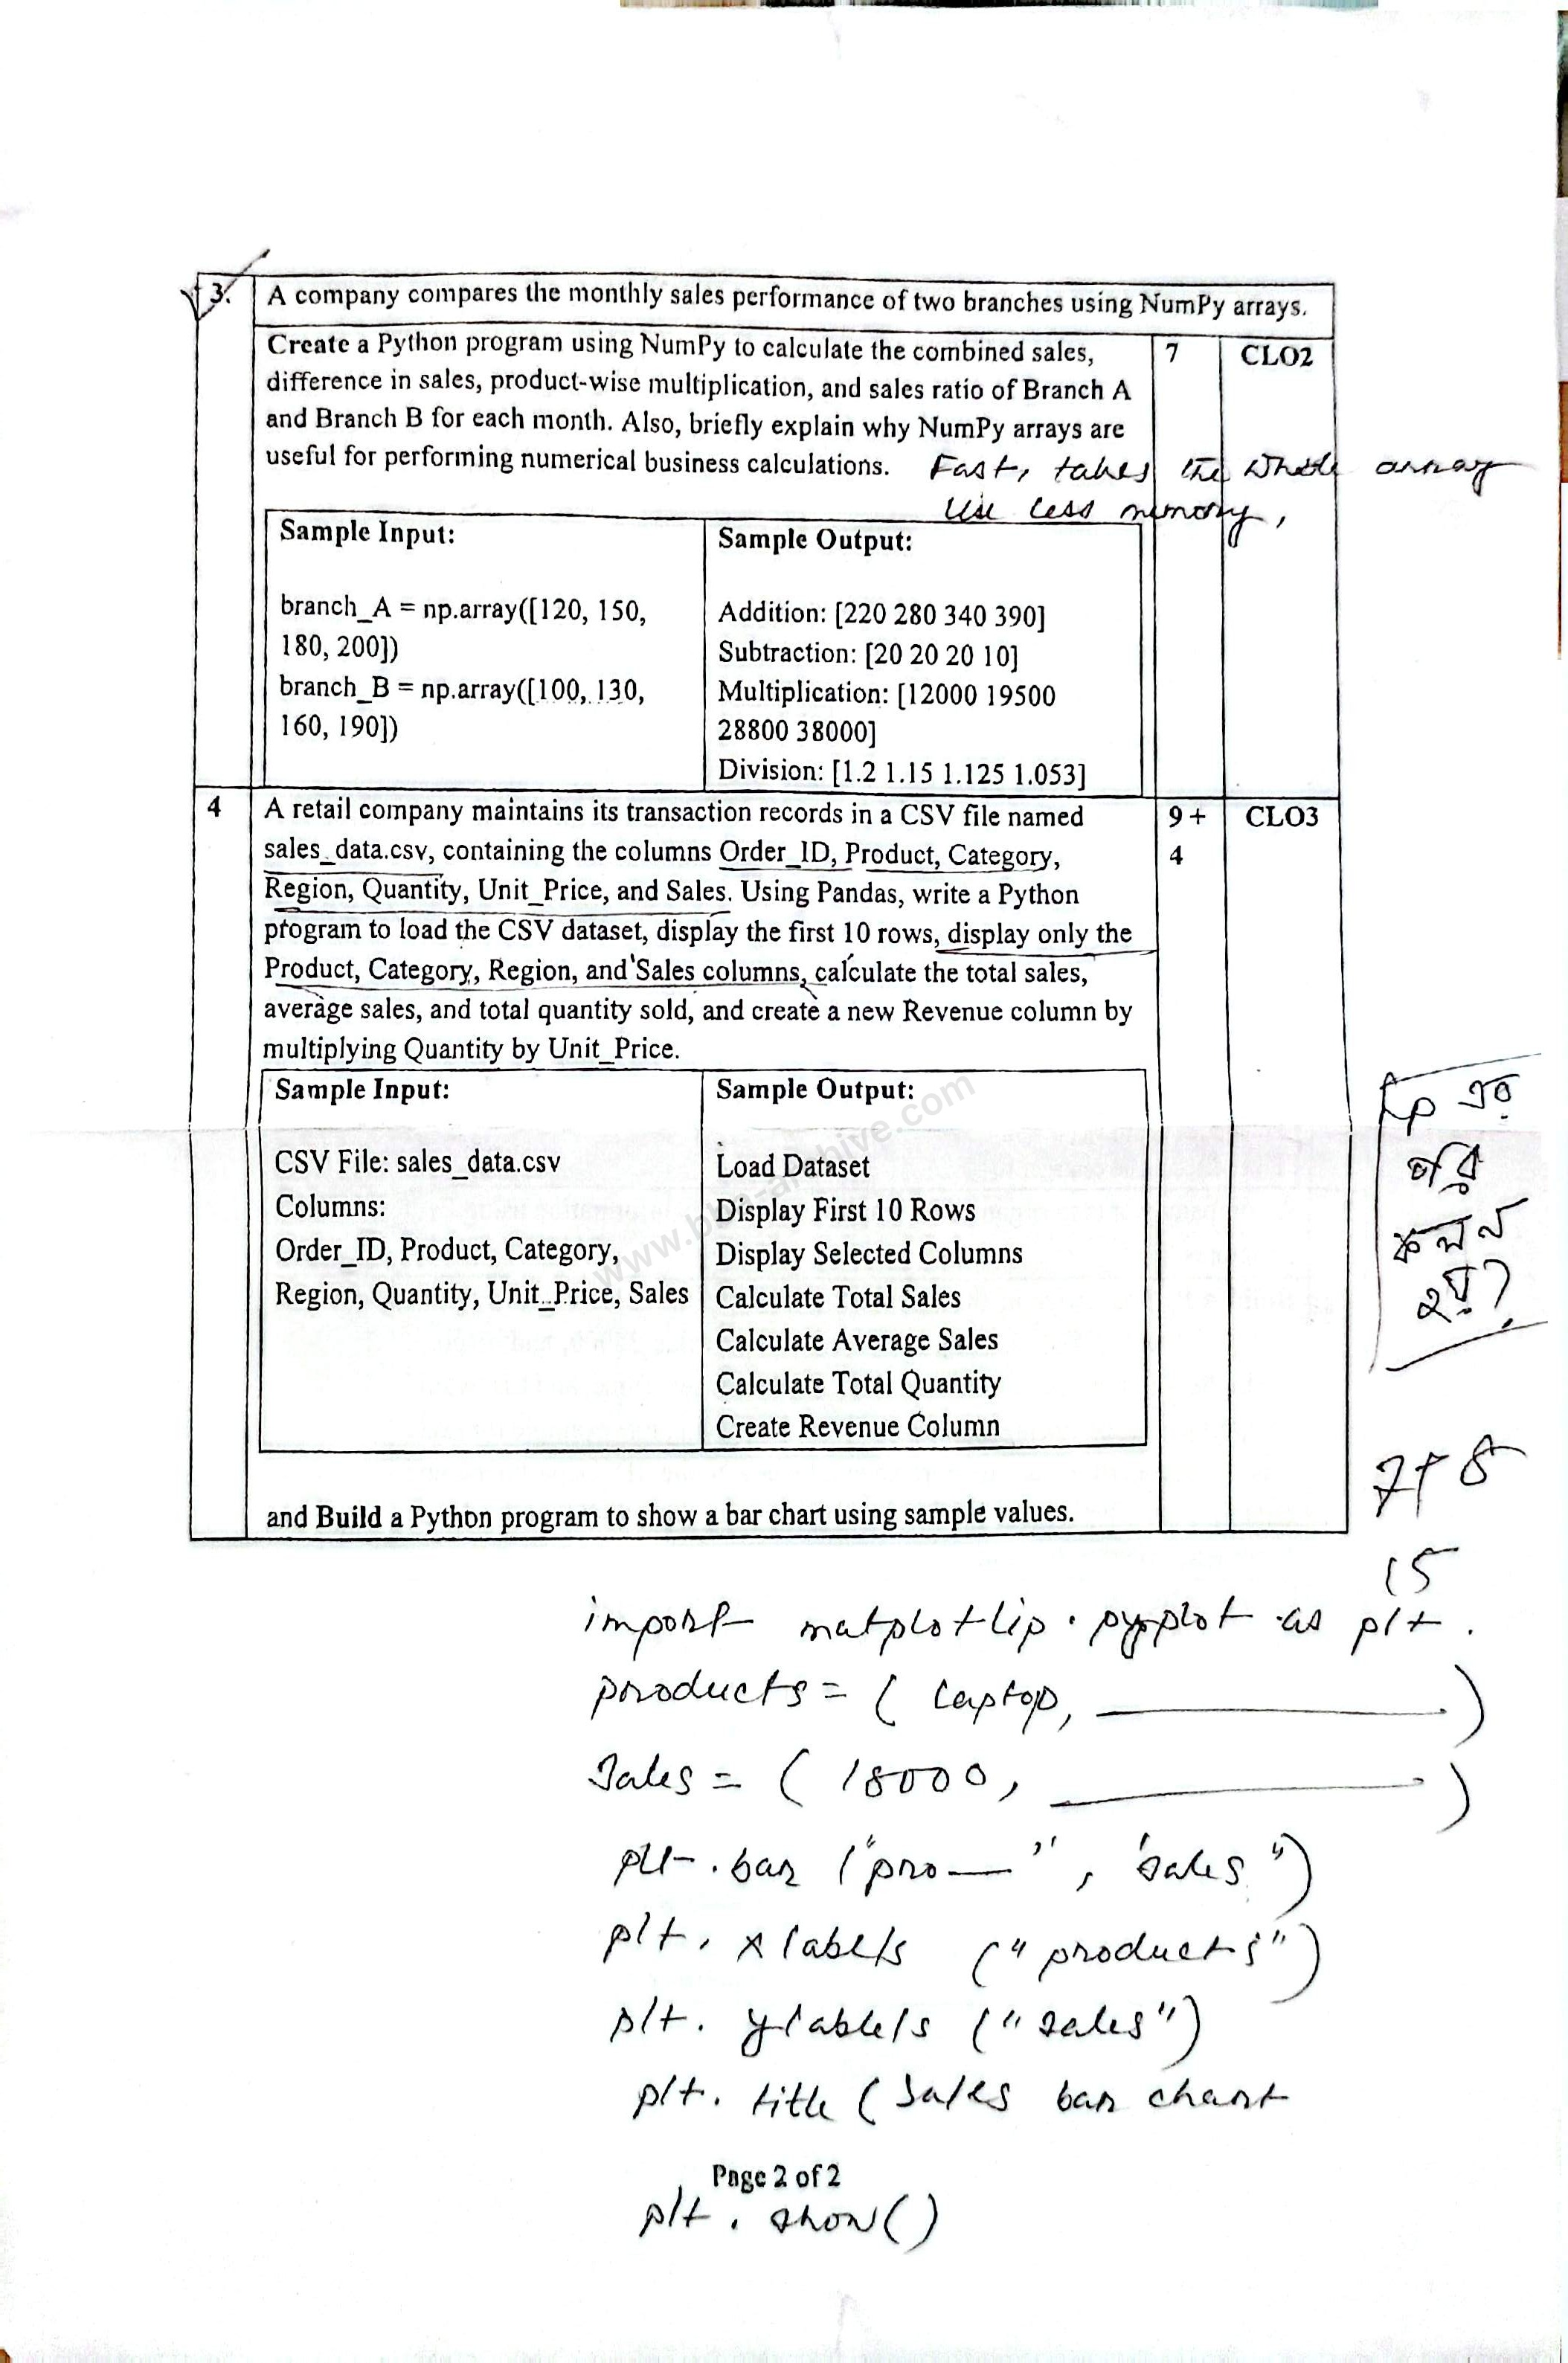 3. A company compares the monthly sales performance of two branches using NumPy arrays.
Create a Python program using NumPy to calculate the combined sales, 7 CLO2
difference in sales, product-wise multiplication, and sales ratio of Branch A
and Branch B for each month. Also, briefly explain why NumPy arrays are
useful for performing numerical business calculations. Fast, takes the whole array
Use less memory,
Sample Input:
branch_A = np.array([120, 150,
180, 200])
branch_B = np.array([100, 130,
160, 190])
Sample Output:
Addition: [220 280 340 390]
Subtraction: [20 20 20 10]
Multiplication: [12000 19500
28800 38000]
Division: [1.2 1.15 1.125 1.053]
4 A retail company maintains its transaction records in a CSV file named 9 + CLO3
sales_data.csv, containing the columns Order_ID, Product, Category, 4
Region, Quantity, Unit_Price, and Sales. Using Pandas, write a Python
program to load the CSV dataset, display the first 10 rows, display only the
Product, Category, Region, and Sales columns, calculate the total sales,
average sales, and total quantity sold, and create a new Revenue column by
multiplying Quantity by Unit_Price.
Sample Input:
CSV File: sales_data.csv
Columns:
Order_ID, Product, Category,
Region, Quantity, Unit_Price, Sales
Sample Output:
Load Dataset
Display First 10 Rows
Display Selected Columns
Calculate Total Sales
Calculate Average Sales
Calculate Total Quantity
Create Revenue Column
www.bba-archive.com
and Build a Python program to show a bar chart using sample values.
7+8
15
import matplotlip.pyplot as plt.
products = ( laptop, )
Sales = ( 18000, )
plt.bar ("pro—", 'sales")
plt. xlabels ("products")
plt. ylabels ("sales")
plt. title (Sales bar chart
Page 2 of 2
plt. show()